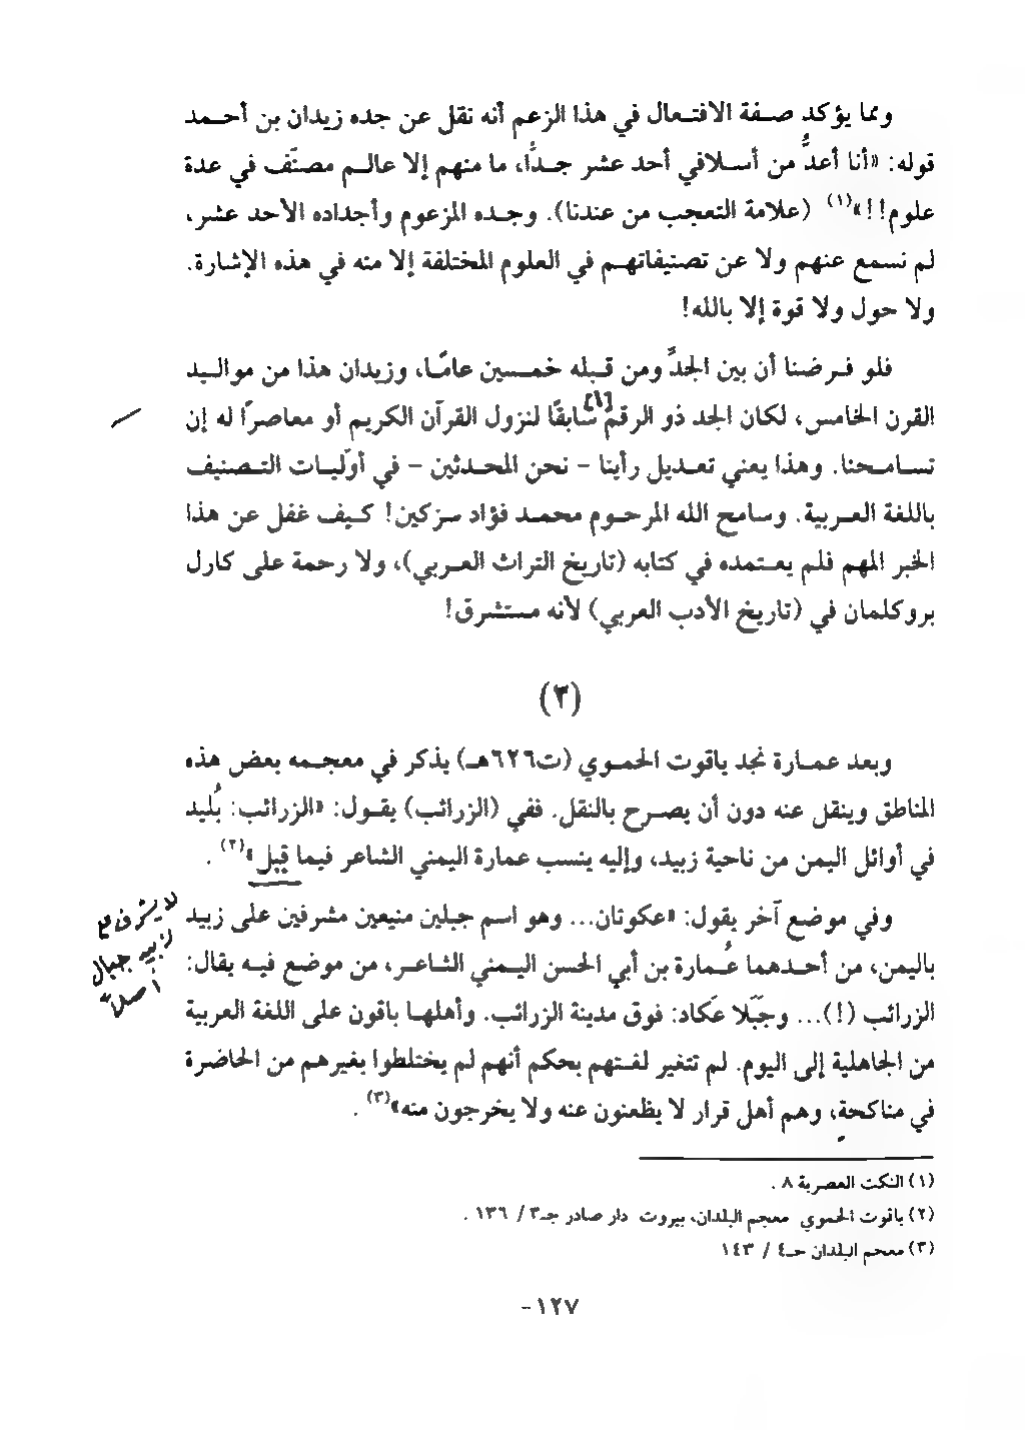 ومما يؤكد صفة الافتعال في هذا الزعم أنه نقل عن جده زيدان بن أحمد
قوله: «أنا أعدُّ من أسلافي أحد عشر جدًّا، ما منهم إلا عالم مصنّف في عدة
علوم!!»(١) (علامة التعجب من عندنا). وجده المزعوم وأجداده الأحد عشر،
لم نسمع عنهم ولا عن تصنيفاتهم في العلوم المختلفة إلا منه في هذه الإشارة.
ولا حول ولا قوة إلا بالله!
فلو فرضنا أن بين الجدِّ ومن قبله خمسين عامًا، وزيدان هذا من مواليد
القرن الخامس، لكان الجد ذو الرقم [١] سابقًا لنزول القرآن الكريم أو معاصرًا له إن
تسامحنا. وهذا يعني تعديل رأينا - نحن المحدثين - في أوّليات التصنيف
باللغة العربية. وسامح الله المرحوم محمد فؤاد سزكين! كيف غفل عن هذا
الخبر المهم فلم يعتمده في كتابه (تاريخ التراث العربي)، ولا رحمة على كارل
بروكلمان في (تاريخ الأدب العربي) لأنه مستشرق!
(٣)
وبعد عمارة نجد ياقوت الحموي (ت٦٢٦هـ) يذكر في معجمه بعض هذه
المناطق وينقل عنه دون أن يصرح بالنقل. ففي (الزرائب) يقول: «الزرائب: بُليد
في أوائل اليمن من ناحية زبيد، وإليه ينسب عمارة اليمني الشاعر فيما قيل»(٢) .
وفي موضع آخر يقول: «عكوتان... وهو اسم جبلين منيعين مشرفين على زبيد
باليمن، من أحدهما عُمارة بن أبي الحسن اليمني الشاعر، من موضع فيه يقال:
الزرائب (!)... وجَبَلا عَكاد: فوق مدينة الزرائب. وأهلها باقون على اللغة العربية
من الجاهلية إلى اليوم. لم تتغير لغتهم بحكم أنهم لم يختلطوا بغيرهم من الحاضرة
في مناكحةٍ، وهم أهل قرار لا يظعنون عنه ولا يخرجون منه»(٣) .
لا يشرف على
زبيد جبال
أصلاً
(١) النكت العصرية ٨ .
(٢) ياقوت الحموي معجم البلدان، بيروت دار صادر جـ٣ / ١٣٦ .
(٣) معجم البلدان جـ٤ / ١٤٣
١٢٧-